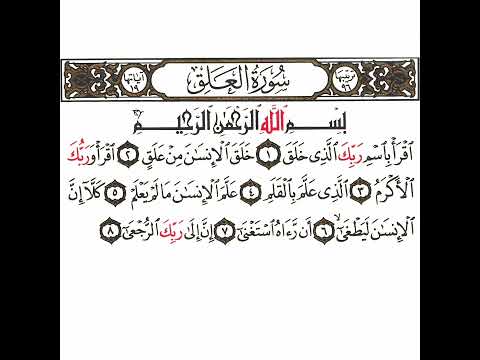 ترتيبها ٩٦ سُورَةُ الْعَلَقِ آياتها ١٩
بِسْمِ ٱللَّهِ ٱلرَّحْمَٰنِ ٱلرَّحِيمِ
ٱقْرَأْ بِٱسْمِ رَبِّكَ ٱلَّذِى خَلَقَ ١ خَلَقَ ٱلْإِنسَٰنَ مِنْ عَلَقٍ ٢ ٱقْرَأْ وَرَبُّكَ
ٱلْأَكْرَمُ ٣ ٱلَّذِى عَلَّمَ بِٱلْقَلَمِ ٤ عَلَّمَ ٱلْإِنسَٰنَ مَا لَمْ يَعْلَمْ ٥ كَلَّآ إِنَّ
ٱلْإِنسَٰنَ لَيَطْغَىٰٓ ٦ أَن رَّءَاهُ ٱسْتَغْنَىٰٓ ٧ إِنَّ إِلَىٰ رَبِّكَ ٱلرُّجْعَىٰٓ ٨